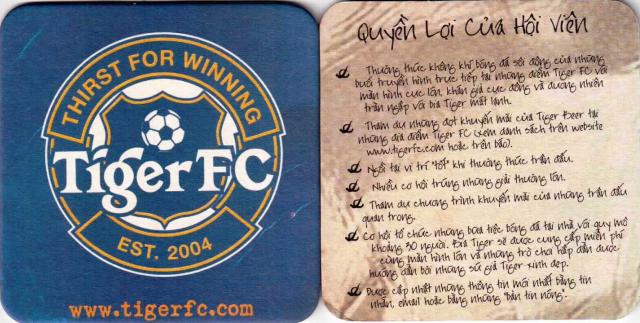 THIRST FOR WINNING
Tiger FC
EST. 2004
www.tigerfc.com
Quyền Lợi Của Hội Viên
Thưởng thức không khí bóng đá sôi động của những
buổi truyền hình trực tiếp tại những điểm Tiger FC với
màn hình cực lớn, khán giả cực đông và đương nhiên
tràn ngập với bia Tiger mát lạnh.
Tham dự những đợt khuyến mãi của Tiger Beer tại
những địa điểm Tiger FC (xem danh sách trên website
www.tigerfc.com hoặc trên báo).
Ngồi tại vị trí "tốt" khi thưởng thức trận đấu.
Nhiều cơ hội trúng những giải thưởng lớn.
Tham dự chương trình khuyến mãi của những trận đấu
quan trọng.
Cơ hội tổ chức những bữa tiệc bóng đá tại nhà với quy mô
khoảng 30 người. Bia Tiger sẽ được cung cấp miễn phí
cùng màn hình lớn và những trò chơi hấp dẫn được
hướng dẫn bởi những sứ giả Tiger xinh đẹp.
Được cập nhật những thông tin mới nhất bằng tin
nhắn, email hoặc bằng những "bản tin nóng".